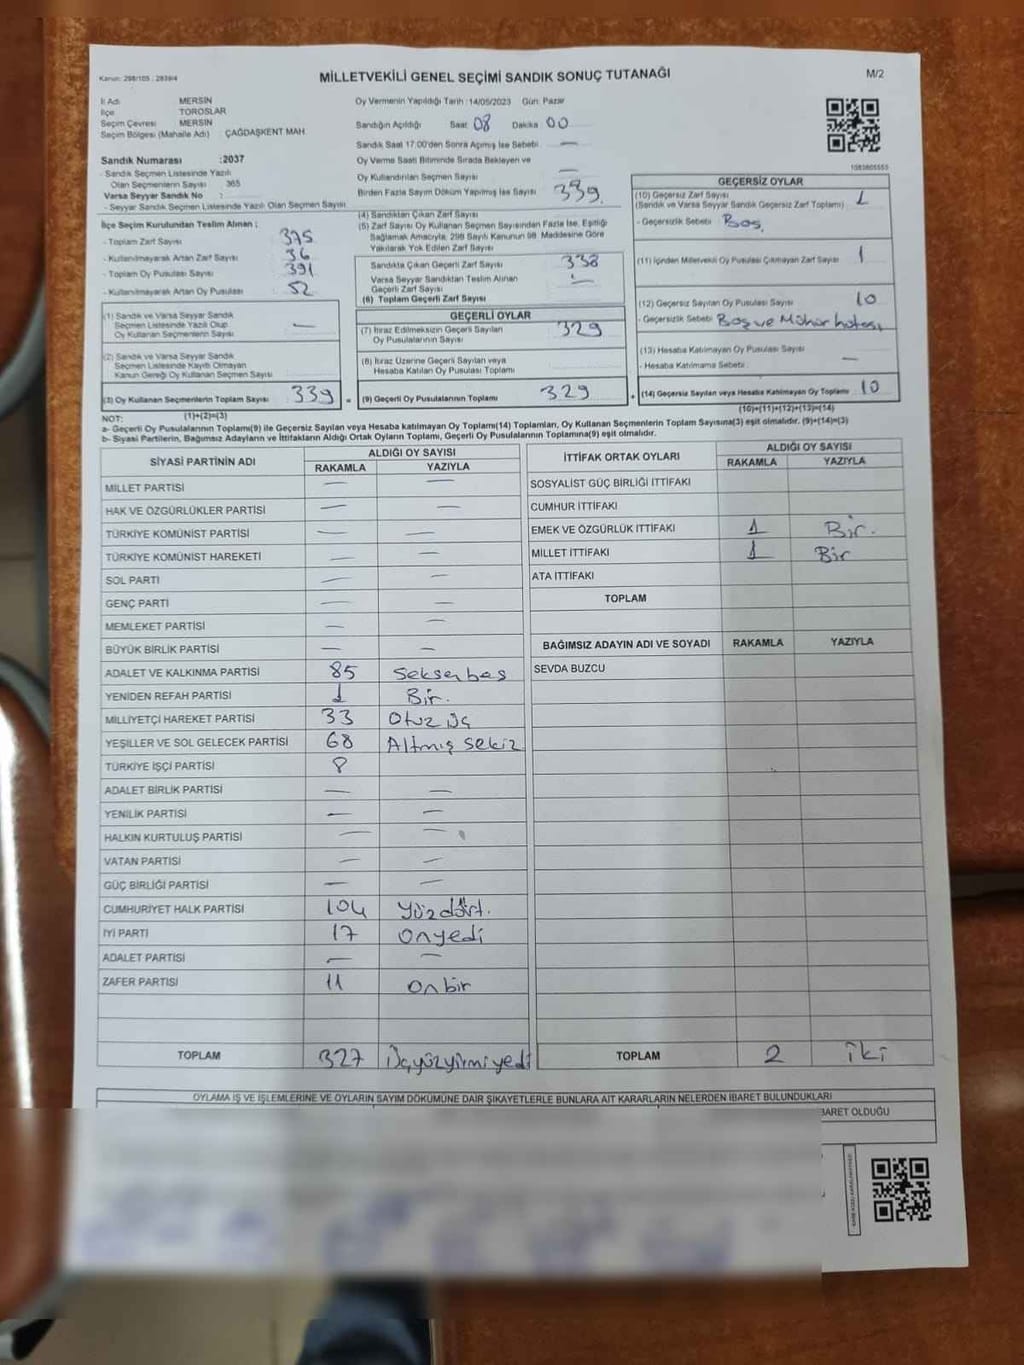 Kanun: 298/105 : 2839/4
MİLLETVEKİLİ GENEL SEÇİMİ SANDIK SONUÇ TUTANAĞI
M/2
İl Adı MERSİN
İlçe TOROSLAR
Seçim Çevresi MERSİN
Seçim Bölgesi (Mahalle Adı) : ÇAĞDAŞKENT MAH.
Oy Vermenin Yapıldığı Tarih : 14/05/2023 Gün: Pazar
Sandığın Açıldığı Saat 08 Dakika 00
Sandık Saat 17:00'den Sonra Açılmış İse Sebebi: —
Oy Verme Saati Bitiminde Sırada Bekleyen ve
Oy Kullandırılan Seçmen Sayısı —
Birden Fazla Sayım Döküm Yapılmış İse Sayısı
339
Sandık Numarası :2037
- Sandık Seçmen Listesinde Yazılı
Olan Seçmenlerin Sayısı 365
Varsa Seyyar Sandık No :
- Seyyar Sandık Seçmen Listesinde Yazılı Olan Seçmen Sayısı
İlçe Seçim Kurulundan Teslim Alınan ;
- Toplam Zarf Sayısı 375
- Kullanılmayarak Artan Zarf Sayısı 36
- Toplam Oy Pusulası Sayısı 391
- Kullanılmayarak Artan Oy Pusulası 52
(1) Sandık ve Varsa Seyyar Sandık
Seçmen Listesinde Yazılı Olup
Oy Kullanan Seçmenlerin Sayısı —
(2) Sandık ve Varsa Seyyar Sandık
Seçmen Listesinde Kayıtlı Olmayan
Kanun Gereği Oy Kullanan Seçmen Sayısı
(3) Oy Kullanan Seçmenlerin Toplam Sayısı 339
(4) Sandıktan Çıkan Zarf Sayısı
(5) Zarf Sayısı Oy Kullanan Seçmen Sayısından Fazla İse, Eşitliği
Sağlamak Amacıyla, 298 Sayılı Kanunun 98. Maddesine Göre
Yakılarak Yok Edilen Zarf Sayısı
Sandıkta Çıkan Geçerli Zarf Sayısı 338
Varsa Seyyar Sandıktan Teslim Alınan
Geçerli Zarf Sayısı —
(6) Toplam Geçerli Zarf Sayısı
GEÇERLİ OYLAR
(7) İtiraz Edilmeksizin Geçerli Sayılan
Oy Pusulalarının Sayısı 329
(8) İtiraz Üzerine Geçerli Sayılan veya
Hesaba Katılan Oy Pusulası Toplamı
= (9) Geçerli Oy Pusulalarının Toplamı 329
1083605555
GEÇERSİZ OYLAR
(10) Geçersiz Zarf Sayısı
(Sandık ve Varsa Seyyar Sandık Geçersiz Zarf Toplamı) 1
- Geçersizlik Sebebi : Boş.
(11) İçinden Milletvekili Oy Pusulası Çıkmayan Zarf Sayısı 1
(12) Geçersiz Sayılan Oy Pusulası Sayısı 10
- Geçersizlik Sebebi Boş ve Mühür hatası
(13) Hesaba Katılmayan Oy Pusulası Sayısı
- Hesaba Katılmama Sebebi : —
+ (14) Geçersiz Sayılan veya Hesaba Katılmayan Oy Toplamı 10
NOT: (1)+(2)=(3)
(10)+(11)+(12)+(13)=(14)
a- Geçerli Oy Pusulalarının Toplamı(9) ile Geçersiz Sayılan veya Hesaba katılmayan Oy Toplamı(14) Toplamları, Oy Kullanan Seçmenlerin Toplam Sayısına(3) eşit olmalıdır. (9)+(14)=(3)
b- Siyasi Partilerin, Bağımsız Adayların ve İttifakların Aldığı Ortak Oyların Toplamı, Geçerli Oy Pusulalarının Toplamına(9) eşit olmalıdır.
SİYASİ PARTİNİN ADI ALDIĞI OY SAYISI
RAKAMLA YAZIYLA
MİLLET PARTİSİ — —
HAK VE ÖZGÜRLÜKLER PARTİSİ — —
TÜRKİYE KOMÜNİST PARTİSİ — —
TÜRKİYE KOMÜNİST HAREKETİ — —
SOL PARTİ — —
GENÇ PARTİ — —
MEMLEKET PARTİSİ — —
BÜYÜK BİRLİK PARTİSİ — —
ADALET VE KALKINMA PARTİSİ 85 Seksenbeş
YENİDEN REFAH PARTİSİ 1 Bir.
MİLLİYETÇİ HAREKET PARTİSİ 33 Otuz üç
YEŞİLLER VE SOL GELECEK PARTİSİ 68 Altmış sekiz
TÜRKİYE İŞÇİ PARTİSİ 8
ADALET BİRLİK PARTİSİ — —
YENİLİK PARTİSİ — —
HALKIN KURTULUŞ PARTİSİ — —
VATAN PARTİSİ — —
GÜÇ BİRLİĞİ PARTİSİ — —
CUMHURİYET HALK PARTİSİ 104 Yüzdört.
İYİ PARTİ 17 Onyedi
ADALET PARTİSİ — —
ZAFER PARTİSİ 11 Onbir
TOPLAM 327 Üçyüzyirmiyedi
İTTİFAK ORTAK OYLARI ALDIĞI OY SAYISI
RAKAMLA YAZIYLA
SOSYALİST GÜÇ BİRLİĞİ İTTİFAKI
CUMHUR İTTİFAKI
EMEK VE ÖZGÜRLÜK İTTİFAKI 1 Bir.
MİLLET İTTİFAKI 1 Bir
ATA İTTİFAKI
TOPLAM
BAĞIMSIZ ADAYIN ADI VE SOYADI RAKAMLA YAZIYLA
SEVDA BUZCU
TOPLAM 2 İki
OYLAMA İŞ VE İŞLEMLERİNE VE OYLARIN SAYIM DÖKÜMÜNE DAİR ŞİKAYETLERLE BUNLARA AİT KARARLARIN NELERDEN İBARET BULUNDUKLARI
BARET OLDUĞU